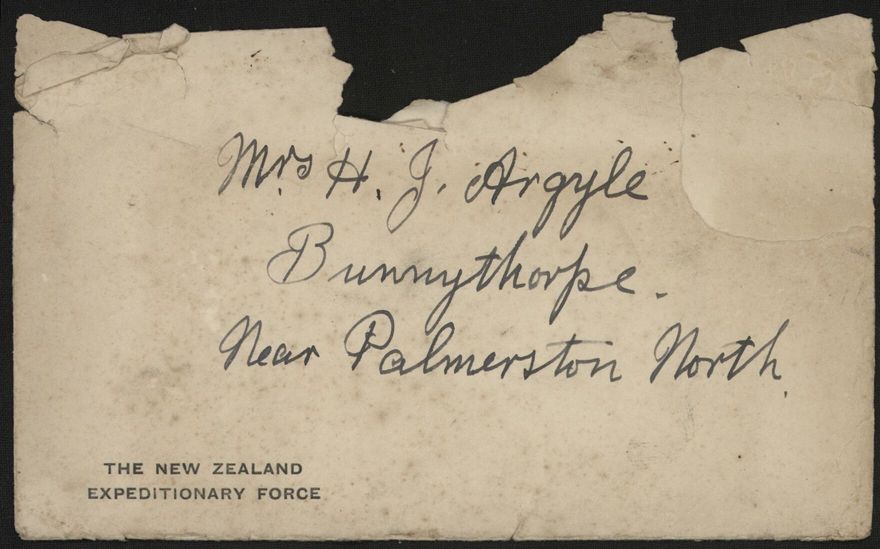 Mrs H. J. Argyle
Bunnythorpe.
Near Palmerston North.
THE NEW ZEALAND
EXPEDITIONARY FORCE